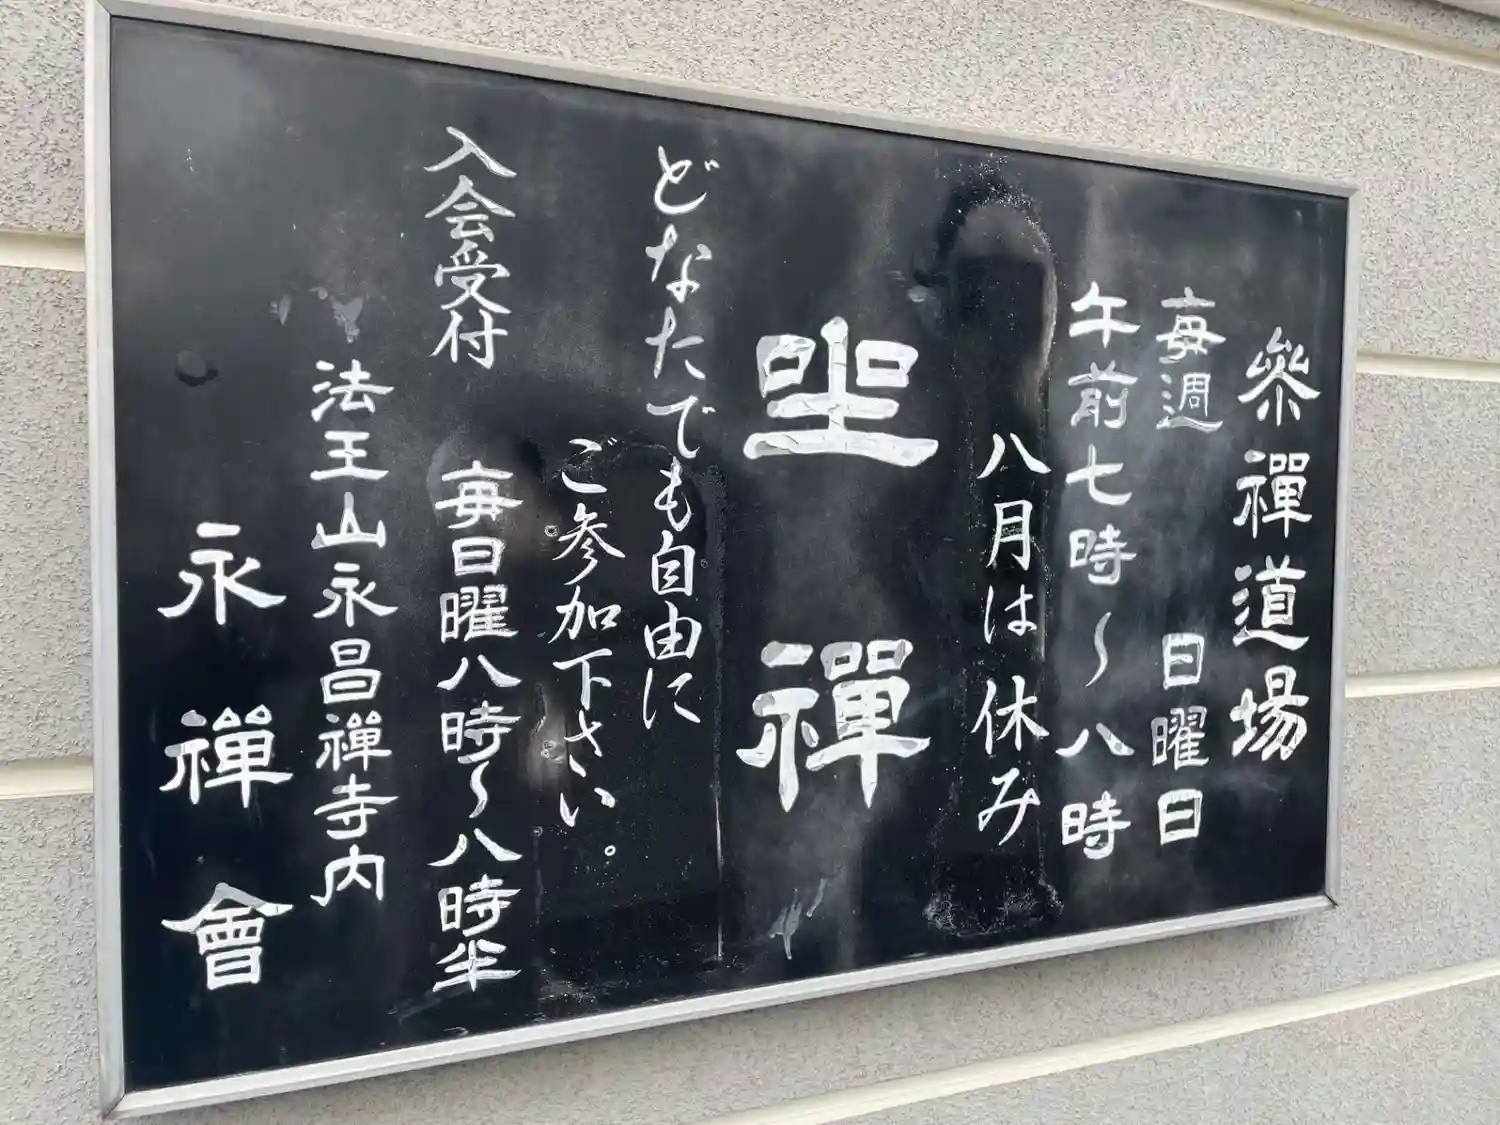 參禪道場
毎週　日曜日
午前七時〜八時
八月は休み
坐禪
どなたでも自由に
ご参加下さい。
入会受付　毎日曜八時〜八時半
法王山永昌禪寺内
永禪會